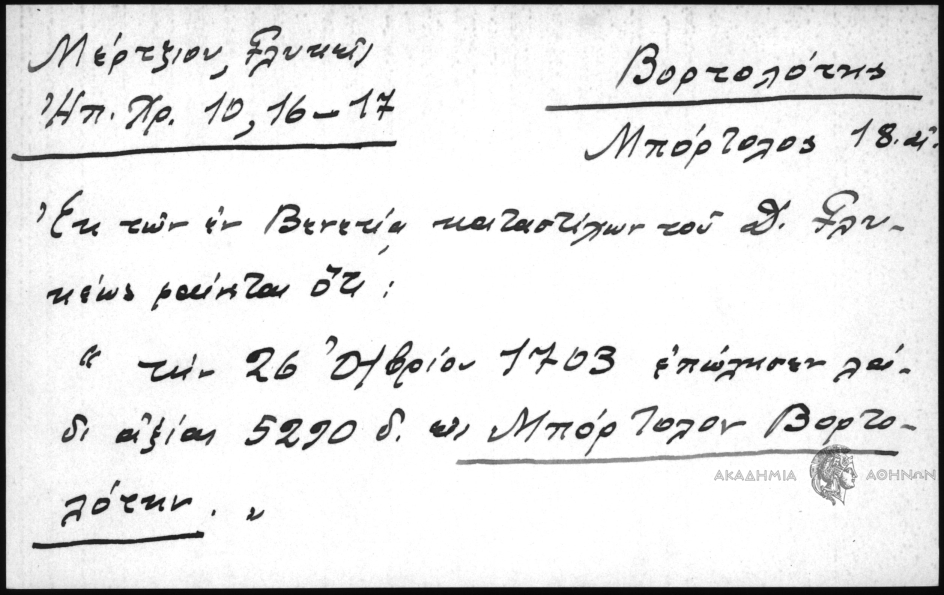 Μέρτζιου, Γλυκεῖς
Βορτολότης
Ἠπ. Χρ. 10, 16-17
Μπόρτολος 18. αἰ.
Ἐκ τῶν ἐν Βενετίᾳ καταστίχων τοῦ Δ. Γλυ-
κέως φαίνεται ὅτι :
“ τὴν 26 Ὀ/βρίου 1703 ἐπώλησεν λά-
δι ἀξίας 5290 δ. εἰς Μπόρτολον Βορτο-
λότην . „
ΑΚΑΔΗΜΙΑ ΑΘΗΝΩΝ